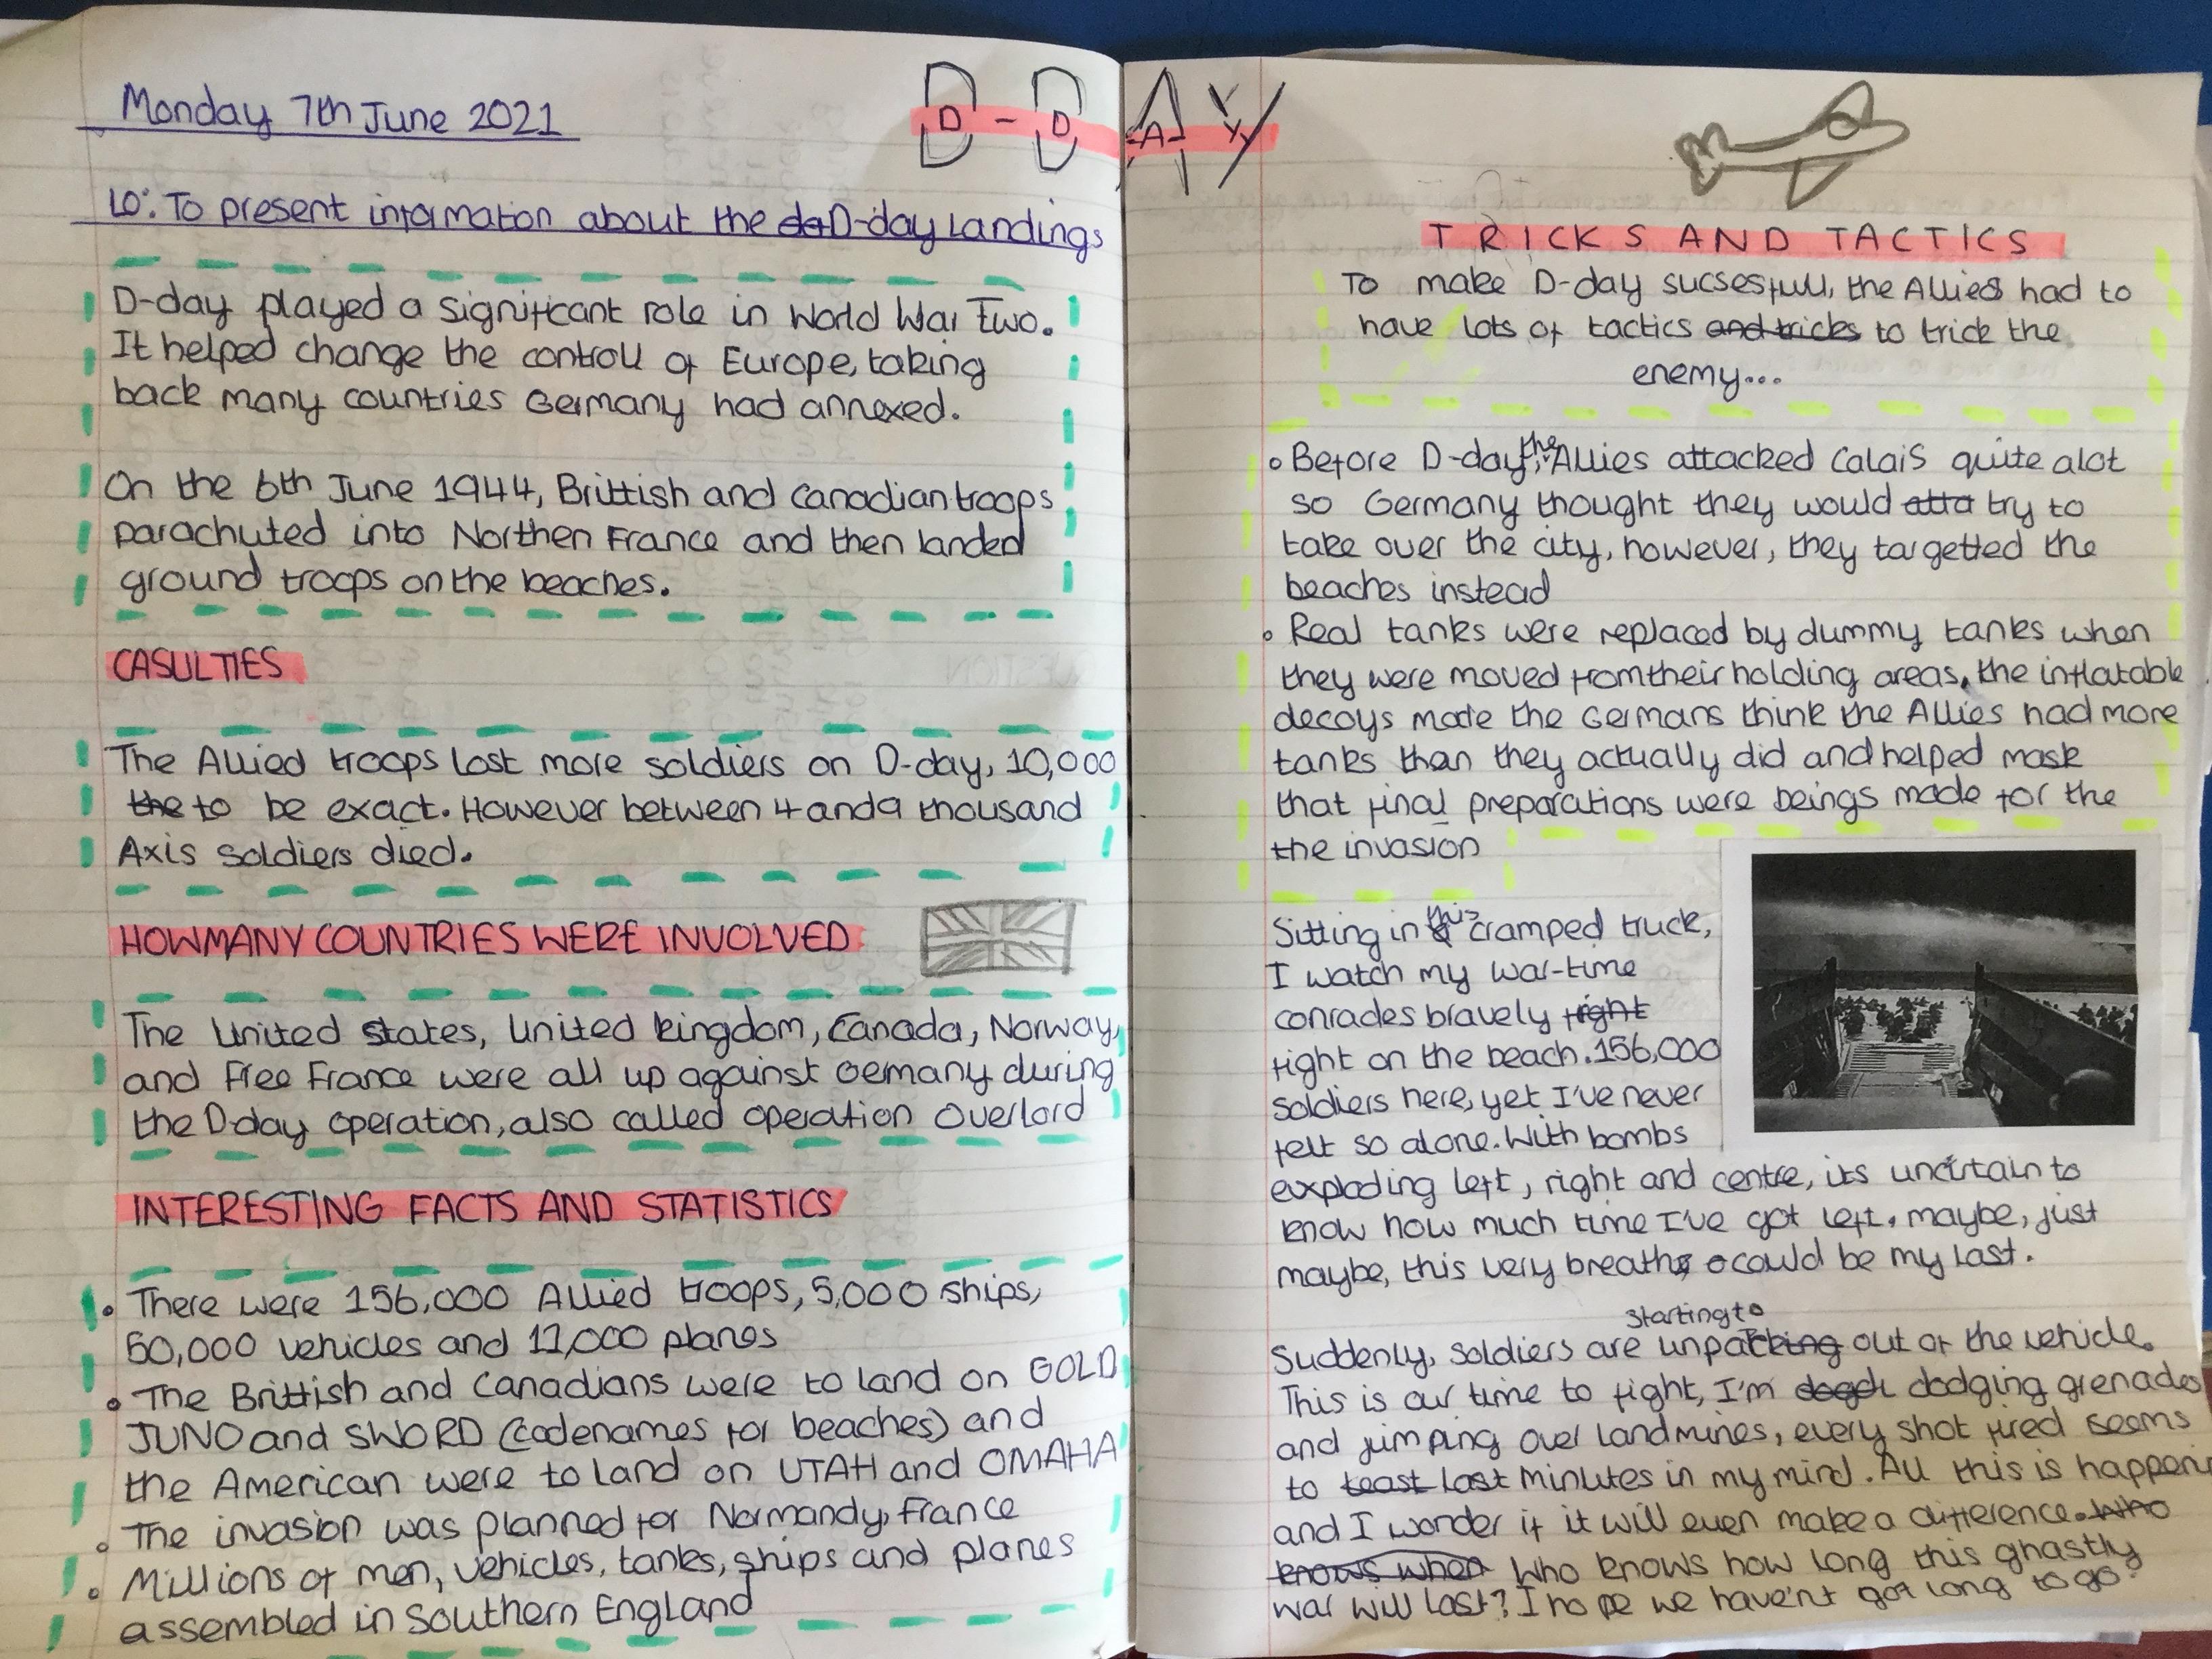 Monday 7th June 2021
D-DAY
LO: To present information about the da D-day Landings
D-day played a significant role in World War Two.
It helped change the controll of Europe, taking
back many countries Germany had annexed.
On the 6th June 1944, Brittish and Canadian troops
parachuted into Northen France and then landed
ground troops on the beaches.
CASULTIES
The Allied troops lost more soldiers on D-day, 10,000
the to be exact. However between 4 and 9 thousand
Axis soldiers died.
HOW MANY COUNTRIES WERE INVOLVED
The United States, United kingdom, Canada, Norway,
and Free France were all up against Gemany during
the D-day operation, also called operation Overlord
INTERESTING FACTS AND STATISTICS
• There were 156,000 Allied troops, 5,000 ships,
50,000 vehicles and 11,000 planes
• The Brittish and Canadians were to land on GOLD
JUNO and SWORD (codenames for beaches) and
the American were to land on UTAH and OMAHA
• The invasion was planned for Normandy, France
• Millions of men, vehicles, tanks, ships and planes
assembled in Southern England
TRICKS AND TACTICS
To make D-day sucsesfull, the Allies had to
have lots of tactics and tricks to trick the
enemy...
• Before D-day, the Allies attacked Calais quite alot
so Germany thought they would atta try to
take over the city, however, they targetted the
beaches instead
• Real tanks were replaced by dummy tanks when
they were moved from their holding areas, the inflatable
decoys made the Germans think the Allies had more
tanks than they actually did and helped mask
that final preparations were beings made for the
the invasion
Sitting in this cramped truck,
I watch my war-time
conrades bravely fight
fight on the beach. 156,000
soldiers here, yet I've never
felt so alone. With bombs
exploding left, right and centre, its uncirtain to
know how much time I've got left. maybe, just
maybe, this very breath could be my last.
starting to
Suddenly, soldiers are unpacking out of the vehicle.
This is our time to fight, I'm dodging grenades
and jumping over landmines, every shot fired seems
to least last minutes in my mind. All this is happeni
and I wonder if it will even make a difference. Who
knows when Who knows how long this ghastly
war will last? I hope we haven't got long to go.